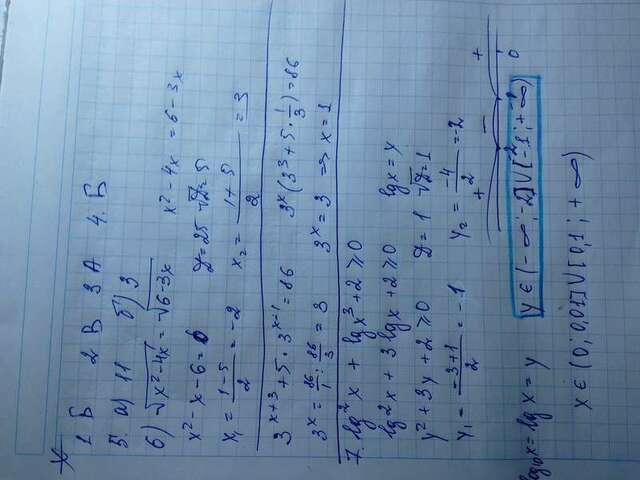 1 Б 2 В 3 А 4. Б
5. а) 11 б) 3
6) √x²-4x = √6-3x x²-4x = 6-3x
x²-x-6=0 D=25 √D=5
x₁ = (1-5)/2 = -2 x₂ = (1+5)/2 = 3
3^(x+3) + 5·3^(x-1) = 86 3^x(3³+5·1/3) = 86
3^x = 86/1 : 86/3 = 3 3^x = 3 => x = 1
7. lg²x + lg x³ + 2 ≥ 0
lg²x + 3 lg x + 2 ≥ 0 lg x = y
y² + 3y + 2 ≥ 0 D = 1 √D = 1
y₁ = (-3+1)/2 = -1 y₂ = -4/2 = -2
+ - +
-2 -1 0
log₁₀x = lg x = y y ∈ (-∞; -2] ∪ [-1; +∞)
x ∈ (0; 0,01] ∪ [0,1; +∞)